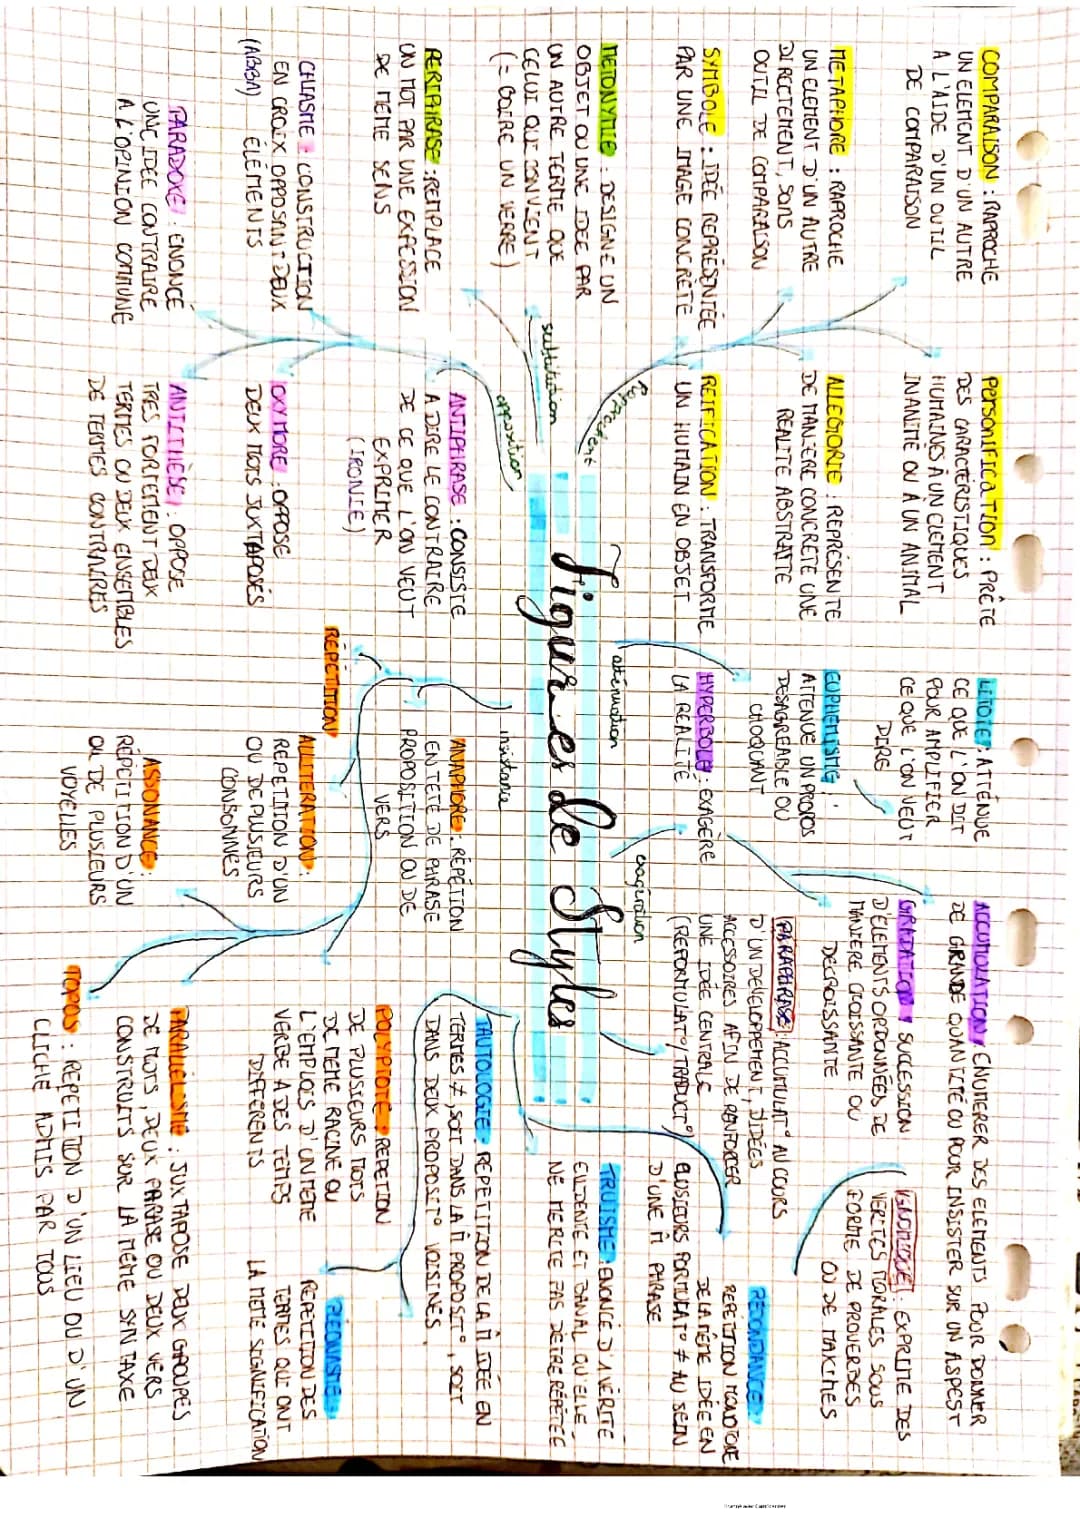 Figures de Styles
rapprochent
COMPARAISON : RAPROCHE
UN ELEMENT D'UN AUTRE
A L'AIDE D'UN OUTIL
DE COMPARAISON
METAPHORE : RAPROCHE
UN ELEMENT D'UN AUTRE
DIRECTEMENT, SANS
OUTIL DE COMPARAISON
SYMBOLE : IDÉE REPRÉSENTÉE
PAR UNE IMAGE CONCRÈTE
PERSONIFICATION : PRÊTE
DES CARACTÉRISTIQUES
HUMAINES À UN ELEMENT
INANIMÉ OU À UN ANIMAL
ALLEGORIE : REPRÉSENTE
DE MANIÈRE CONCRÈTE UNE
REALITE ABSTRAITE
REIFICATION : TRANSFORME
UN HUMAIN EN OBJET
substitution
METONYMIE : DESIGNE UN
OBJET OU UNE IDEE PAR
UN AUTRE TERME QUE
CELUI QUI CONVIENT
(= BOIRE UN VERRE)
PERIPHRASE : REMPLACE
UN MOT PAR UNE EXPESSION
DE MEME SENS
opposition
CHIASME : CONSTRUCTION
EN CROIX OPPOSANT DEUX
(ABBA) ÉLÉMENTS
PARADOXE : ENONCE
UNE IDEE CONTRAIRE
A L'OPINION COMMUNE
ANTIPHRASE : CONSISTE
A DIRE LE CONTRAIRE
DE CE QUE L'ON VEUT
EXPRIMER
(IRONIE)
OXYMORE : OPPOSE
DEUX MOTS JUXTAPOSÉS
ANTITHÈSE : OPPOSE
TRES FORTEMENT DEUX
TERMES OU DEUX ENSEMBLES
DE TERMES CONTRAIRES
atténuation
LITOTE : ATTÉNUE
CE QUE L'ON DIT
POUR AMPLIFIER
CE QUE L'ON VEUT
DIRE
EUPHEMISME :
ATTENUE UN PROPOS
DESAGREABLE OU
CHOQUANT
exagération
HYPERBOLE : EXAGÈRE
LA REALITE
ACCUMULATION : ENUMERER DES ELEMENTS POUR DONNER
DE GRANDE QUANTITÉ OU POUR INSISTER SUR UN ASPEST
GRADATION : SUCCESSION
D'ELEMENTS ORDONNÉES, DE
MANIERE CROISSANTE OU
DECROISSANTE
GNOMIQUE : EXPRIME DES
VERITÉS MORALES SOUS
FORME DE PROVERBES
OU DE MAXIMES
PARAPHRASE : ACCUMULAT° AU COURS
D'UN DEVELOPEMENT, D'IDÉES
ACCESSOIRES AFIN DE RENFORCER
UNE IDÉE CENTRALE
(REFORMULAT°/TRADUCT°)
REDONDANCE :
REPETITION MONOTONE
DE LA MÊME IDÉE EN
PLUSIEURS FORMULAT° ≠ AU SEIN
D'UNE M̂ PHRASE
TRUISME : ENONCÉ D'1 VÉRITÉ
EVIDENTE ET BANAL QU'ELLE
NE MERITE PAS D'ÊTRE RÉPÉTÉE
insistance
TAUTOLOGIE : REPETITION DE LA M̂ IDÉE EN
TERMES ≠ SOIT DANS LA M̂ PROPOSIT°, SOIT
DANS DEUX PROPOSIT° VOISINES
PLEONASME :
REPETITION DES
TERMES QUI ONT
LA MEME SIGNIFICATION
REPETITION
ANAPHORE : RÉPÉTION
EN TÊTE DE PHRASE
PROPOSITION OU DE
VERS
ALLITERATION :
RÉPETITION D'UN
OU DE PLUSIEURS
CONSONNES
ASSONANCE :
RÉPÉTITION D'UN
OU DE PLUSIEURS
VOYELLES
POLYPTOTE : REPETION
DE PLUSIEURS MOTS
DE MEME RACINE OU
L'EMPLOIS D'UN MEME
VERBE A DES TEMPS
DIFFERENTS
PARALLÈLISME : JUXTAPOSE DEUX GROUPES
DE MOTS, DEUX PHRASE OU DEUX VERS
CONSTRUITS SUR LA MÊME SYNTAXE
TOPOS : REPETITION D'UN LIEU OU D'UN
CLICHÉ ADMIS PAR TOUS